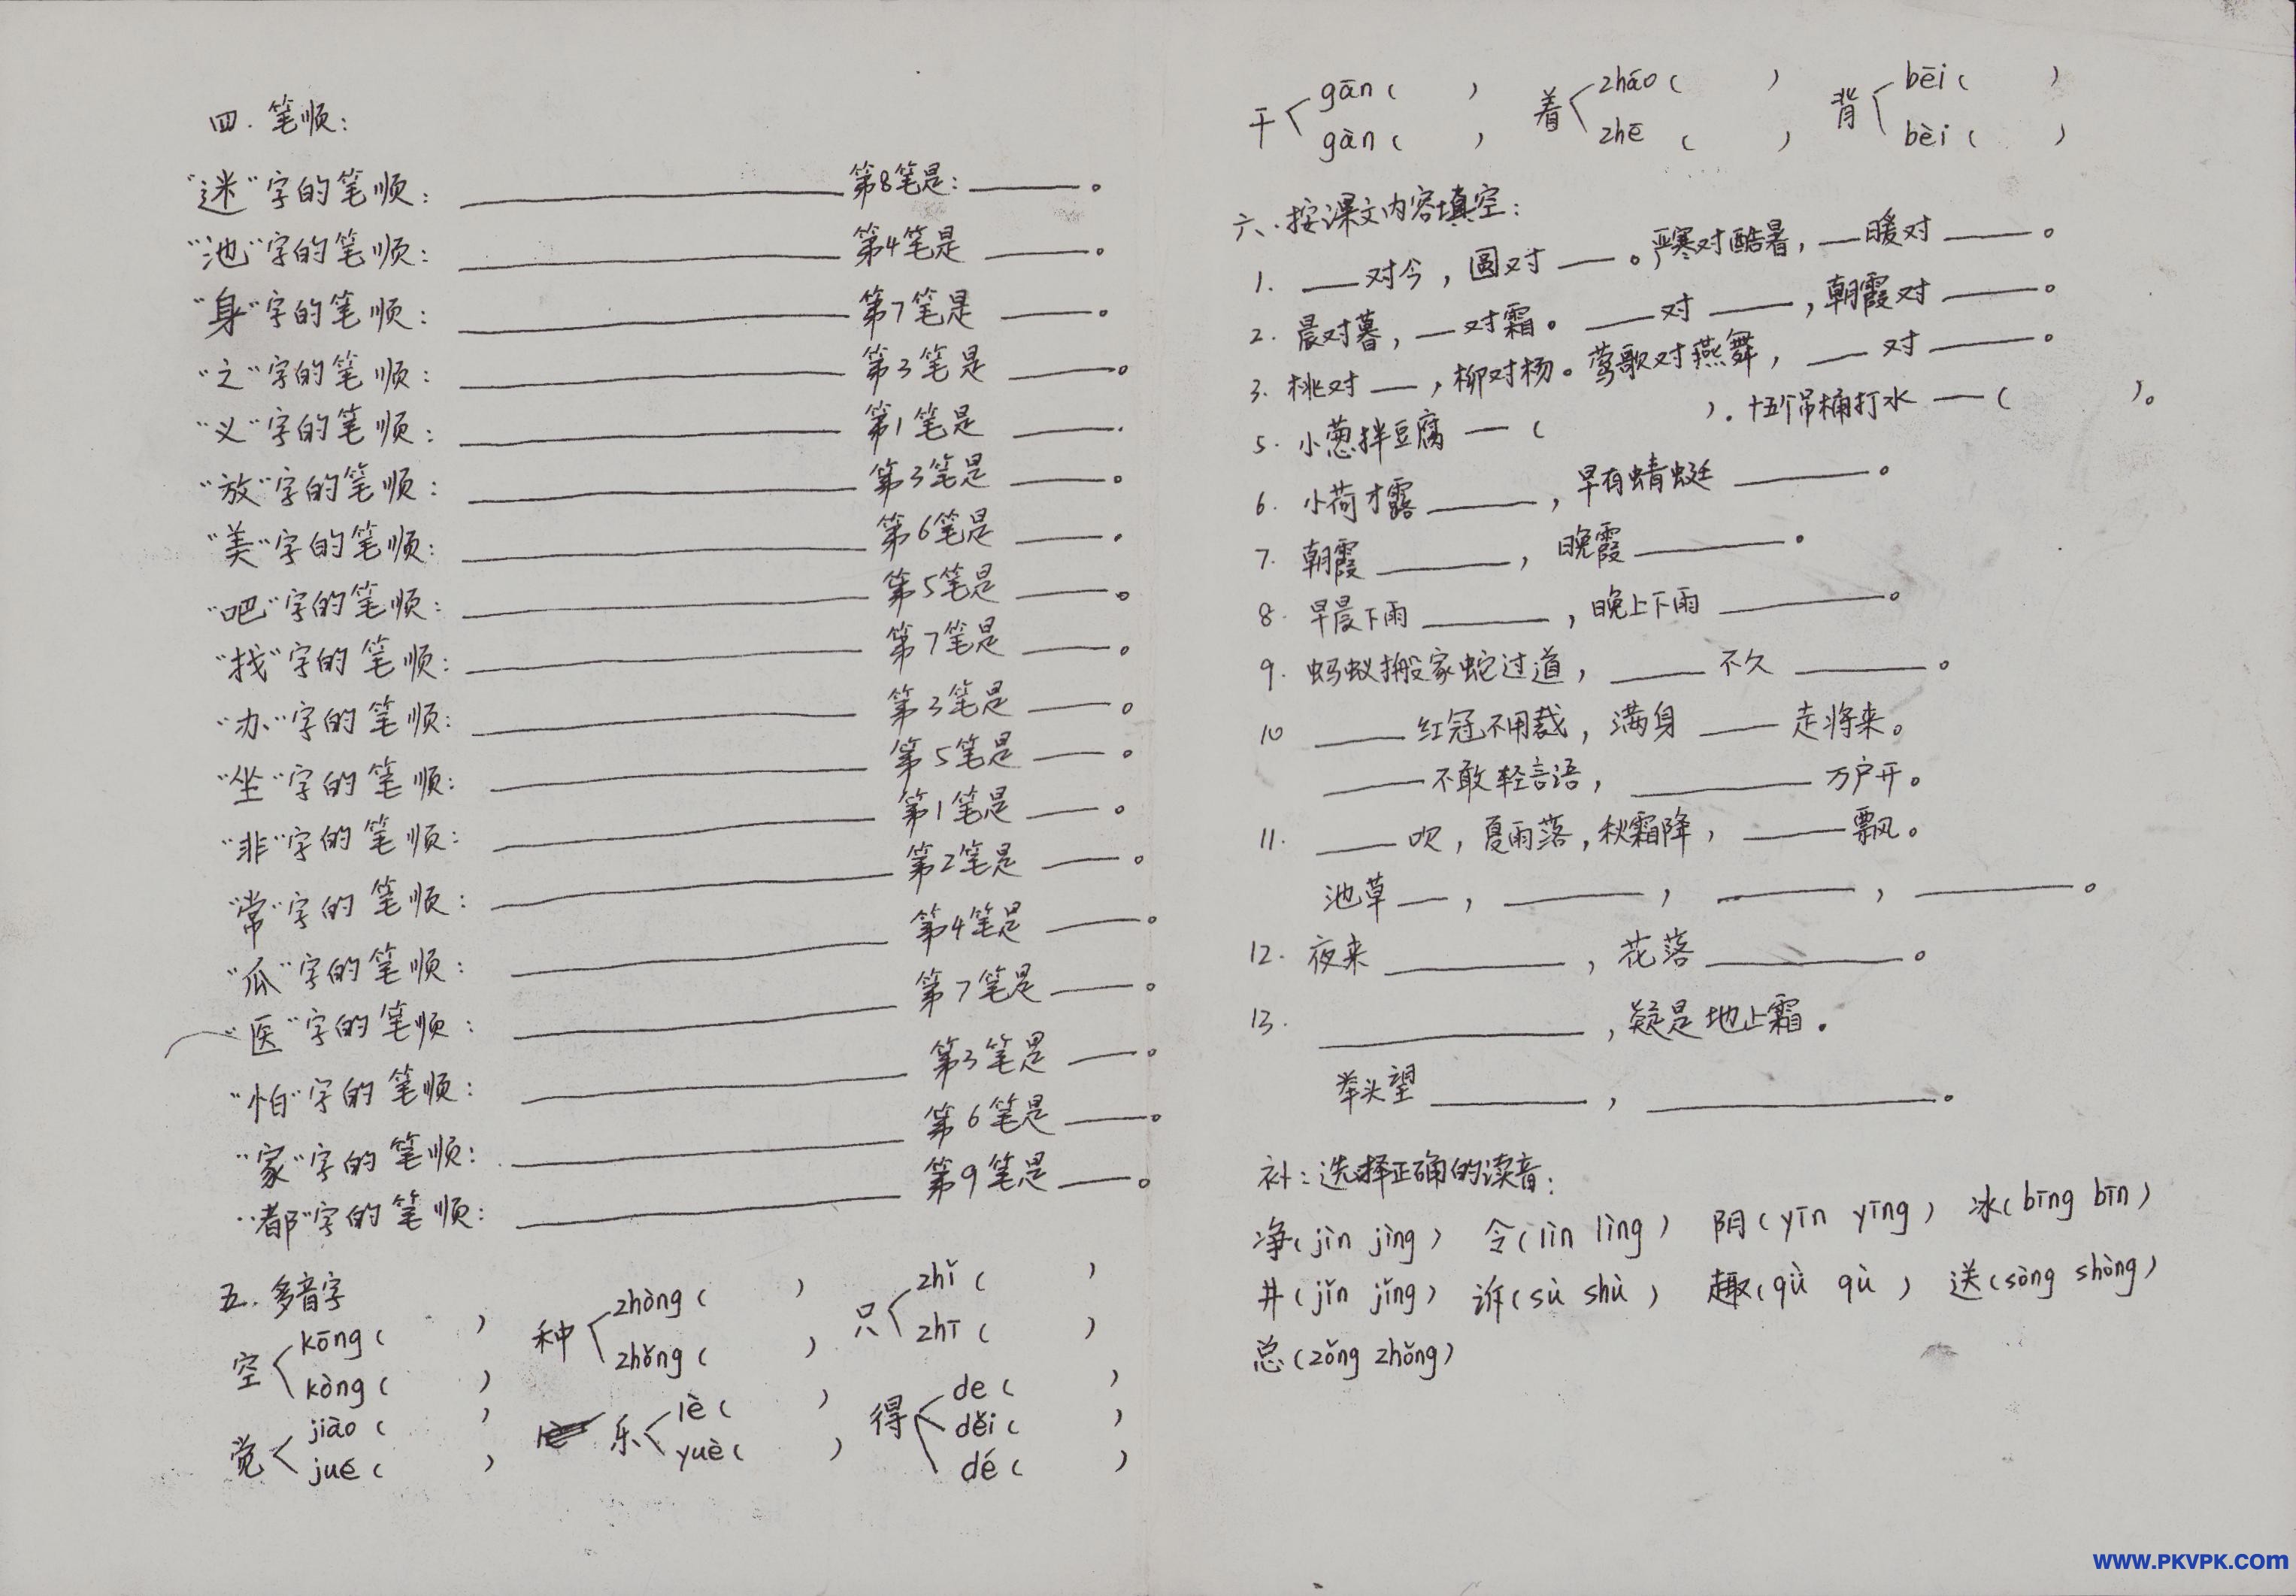 四. 笔顺:
“迷”字的笔顺: ______ 第8笔是: ____。
“池”字的笔顺: ______ 第4笔是 ____。
“身”字的笔顺: ______ 第7笔是 ____。
“之”字的笔顺: ______ 第3笔是 ____。
“义”字的笔顺: ______ 第1笔是 ____.
“放”字的笔顺: ______ 第3笔是 ____。
“美”字的笔顺: ______ 第6笔是 ____.
“吧”字的笔顺: ______ 第5笔是 ____。
“找”字的笔顺: ______ 第7笔是 ____。
“办”字的笔顺: ______ 第3笔是 ____。
“坐”字的笔顺: ______ 第5笔是 ____。
“非”字的笔顺: ______ 第1笔是 ____。
“常”字的笔顺: ______ 第2笔是 ____。
“瓜”字的笔顺: ______ 第4笔是 ____。
“医”字的笔顺: ______ 第7笔是 ____。
“怕”字的笔顺: ______ 第3笔是 ____。
“家”字的笔顺: ______ 第6笔是 ____。
“都”字的笔顺: ______ 第9笔是 ____。
五. 多音字
空 kōng ( ) kòng ( ) 种 zhòng ( ) zhǒng ( ) 只 zhǐ ( ) zhī ( )
觉 jiào ( ) jué ( ) 乐 lè ( ) yuè ( ) 得 de ( ) děi ( ) dé ( )
干 gān ( ) gàn ( ) 着 zháo ( ) zhē ( ) 背 bēi ( ) bèi ( )
六. 按课文内容填空:
1. ____对今, 圆对____。严寒对酷暑, ____暖对____。
2. 晨对暮, ____对霜。____对____, 朝霞对____。
3. 桃对____, 柳对杨。莺歌对燕舞, ____对____。
5. 小葱拌豆腐 — ( ). 十五个吊桶打水 — ( )。
6. 小荷才露____, 早有蜻蜓____。
7. 朝霞____, 晚霞____。
8. 早晨下雨____, 晚上下雨____。
9. 蚂蚁搬家蛇过道, ____不久____。
10 ____红冠不用裁, 满身____走将来。
____不敢轻言语, ____万户开。
11. ____吹, 夏雨落, 秋霜降, ____飘。
池草____, ____, ____, ____。
12. 夜来____, 花落____。
13. ____, 疑是地上霜.
举头望____, ____。
补: 选择正确的读音:
净(jìn jìng) 令(lìn lìng) 阴(yīn yīng) 冰(bīng bīn)
井(jǐn jǐng) 诉(sù shù) 趣(qǜ qù) 送(sòng shòng)
总(zǒng zhǒng)
www.PKVPK.com